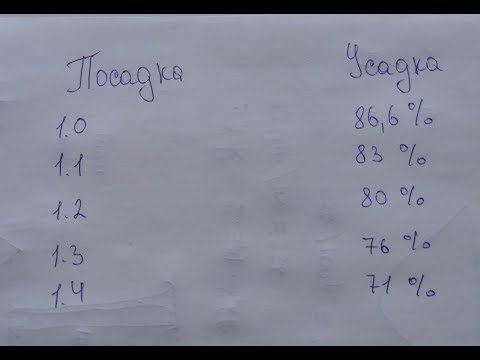 Посадка Усадка
1.0 86,6 %
1.1 83 %
1.2 80 %
1.3 76 %
1.4 71 %